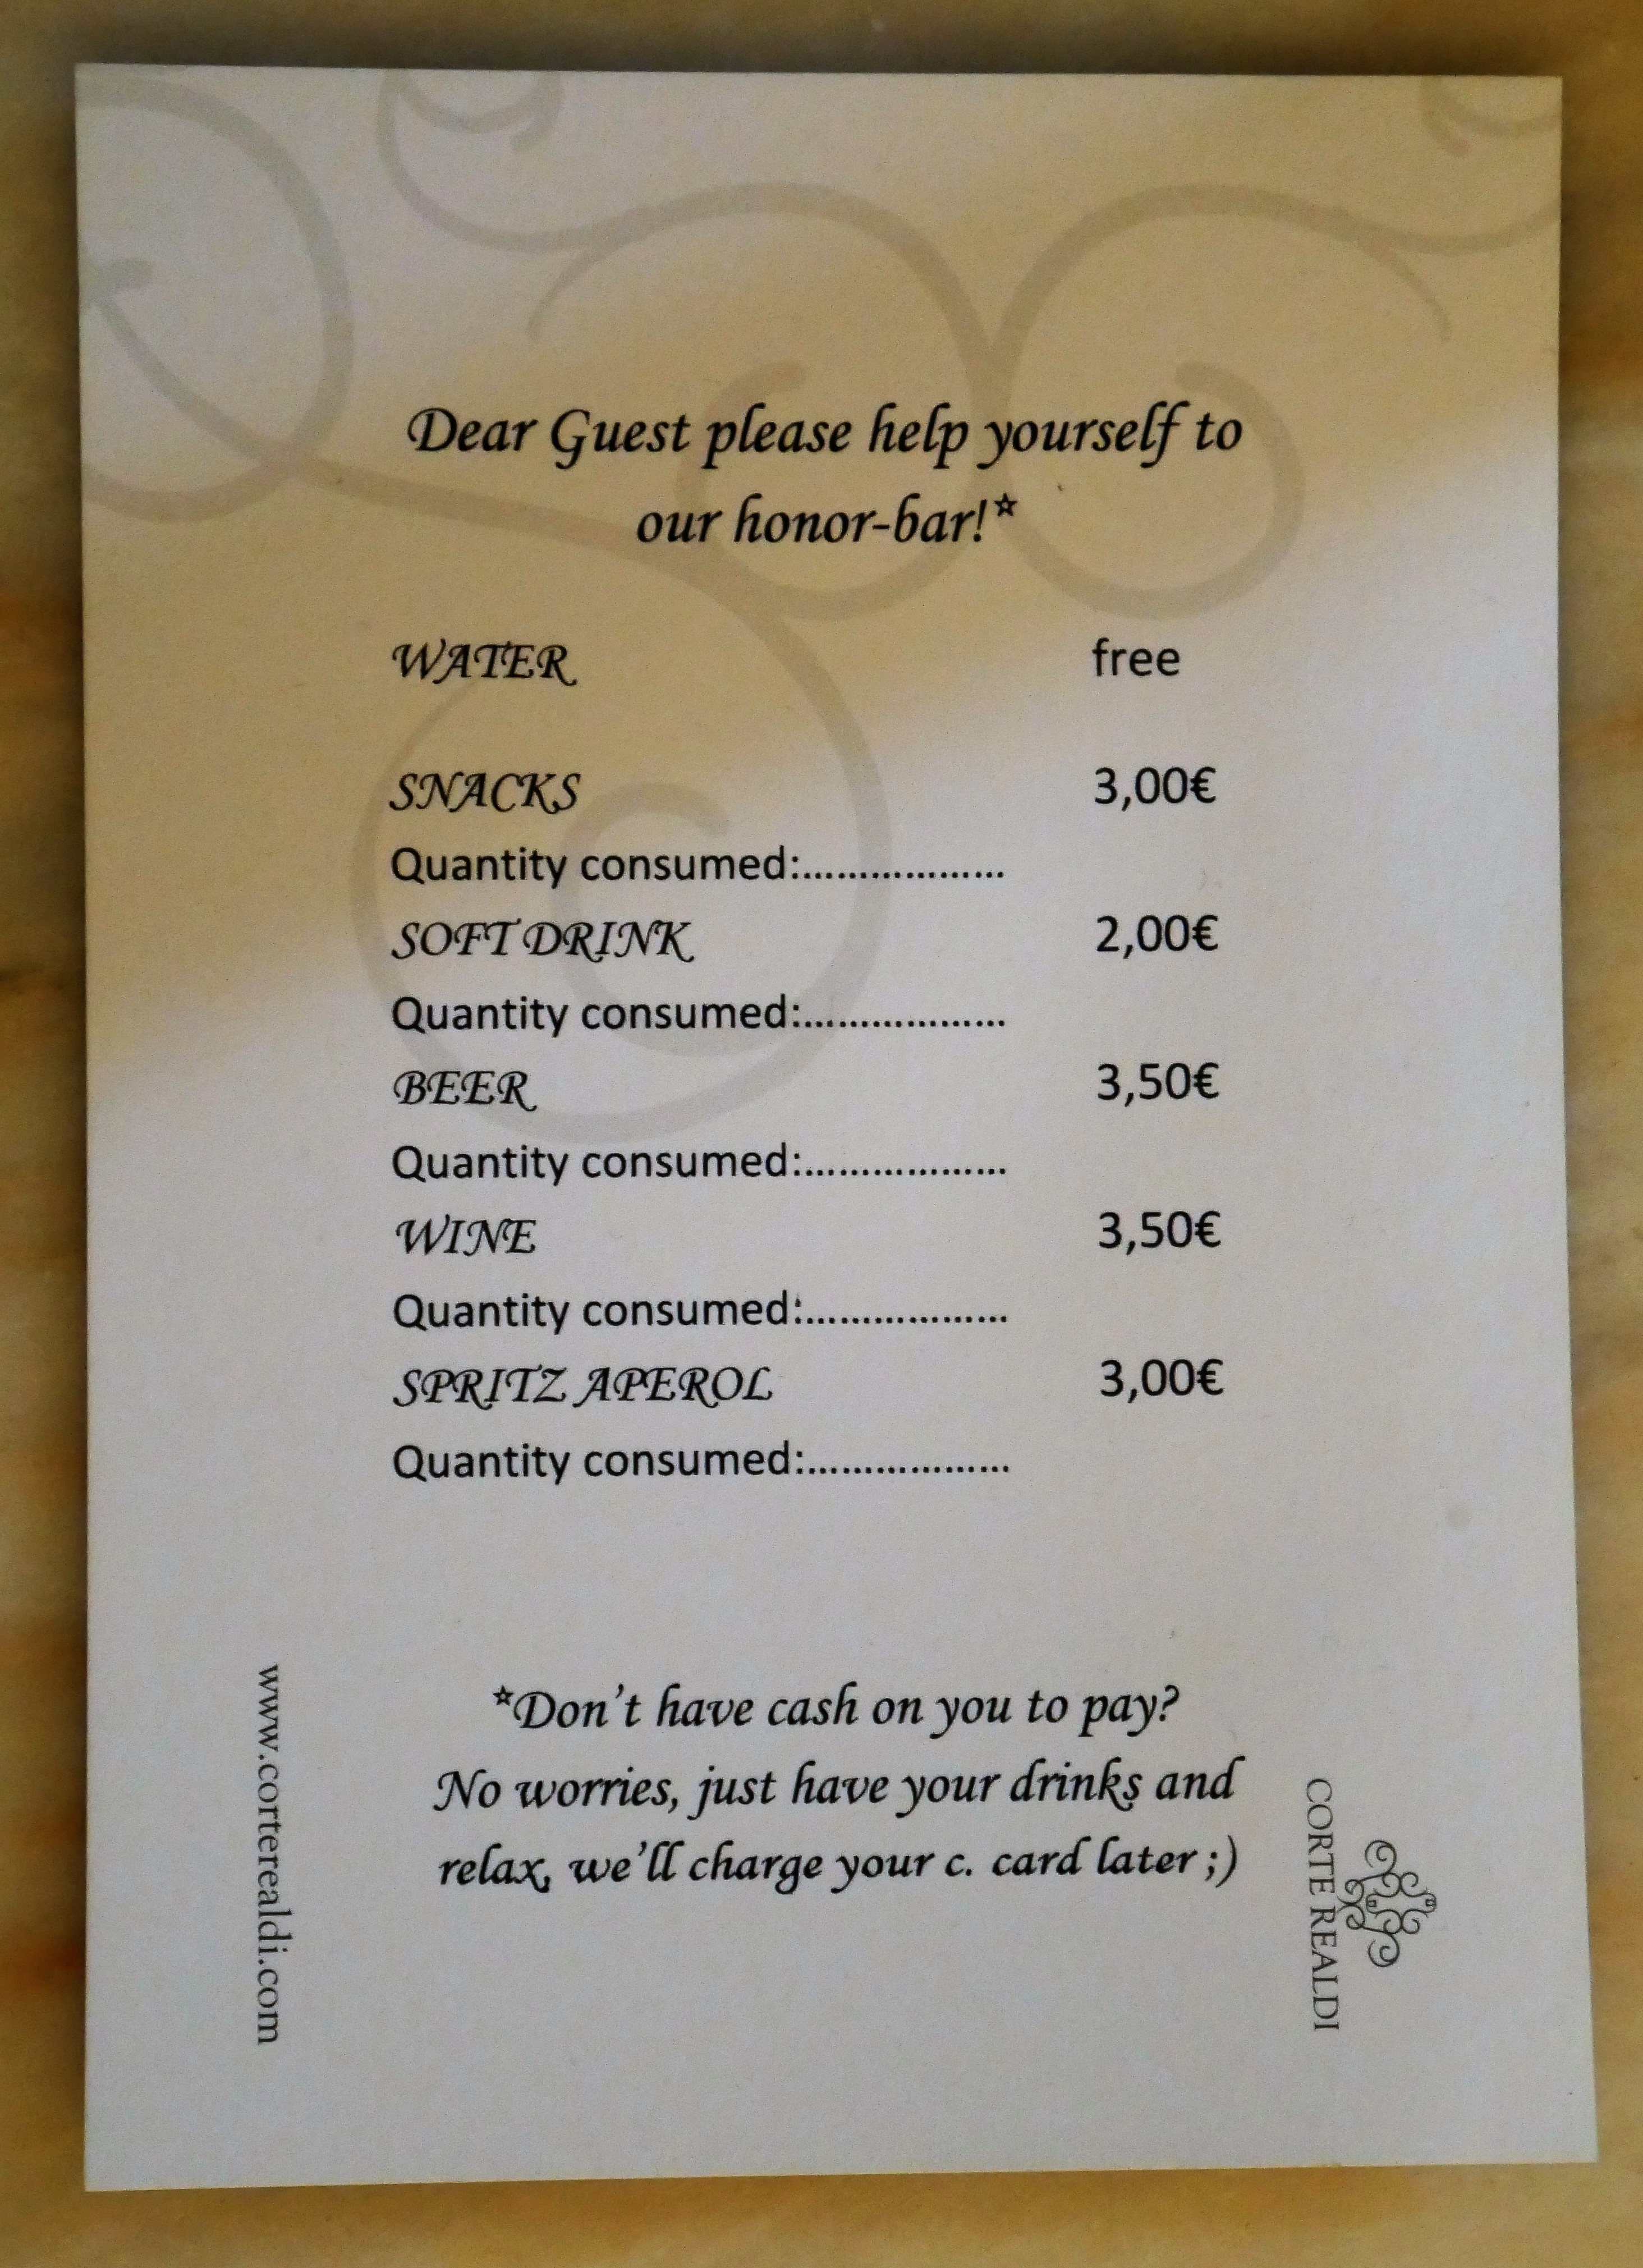 Dear Guest please help yourself to
our honor-bar!*
WATER free
SNACKS 3,00€
Quantity consumed:..................
SOFT DRINK 2,00€
Quantity consumed:..................
BEER 3,50€
Quantity consumed:..................
WINE 3,50€
Quantity consumed:..................
SPRITZ APEROL 3,00€
Quantity consumed:..................
*Don't have cash on you to pay?
No worries, just have your drinks and
relax, we'll charge your c. card later ;)
www.corterealdi.com
CORTE REALDI